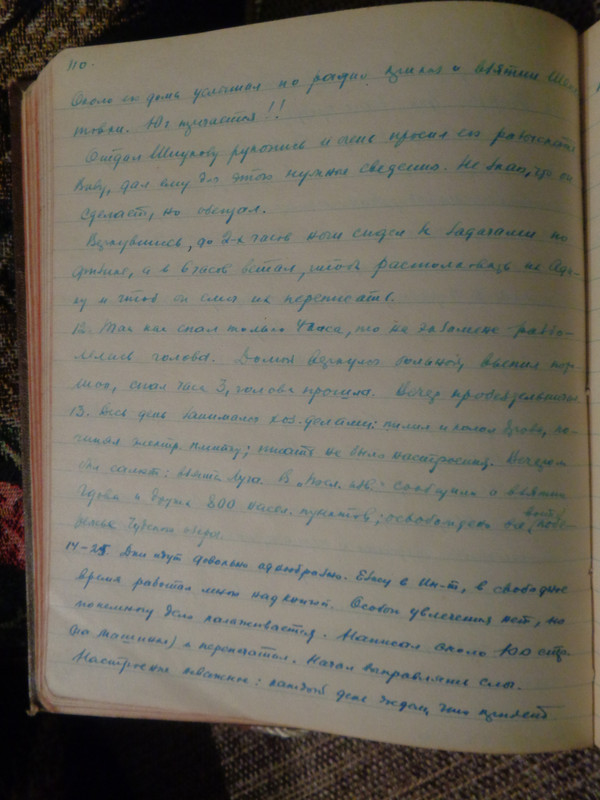 110.
Около его дома услышал по радио приказ о взятии Шепе-
товки. Юг кончается!!
Отдал Шмукову рукопись и очень просил его разыскать
Вову, дал ему для этого нужные сведения. Не знаю, что он
сделает, но обещал.
Вернувшись, до 2-х часов ночи сидел за задачами по
физике, а в 6 часов встал, чтобы растолковать их
и чтоб он смог их переписать.
12. Так как спал только 4 часа, то на экзамене разбо-
лелась голова. Домой вернулся больной, выпил
спал часа 3, голова прошла. Вечер пробездельничал
13. Весь день занимался хоз. делами: пилил и колол дрова, по-
чинял электр. плитку; писать не было настроения. Вечером
был салют: взята Луга. В „Посл. изв." сообщили о взятии
Гдова и других 800 насел. пунктов; освобождено все вост. побе-
режье Чудского озера.
14-25. Дни идут довольно однообразно. Езжу в Ин-т, в свободное
время работаю над книгой. Особого увлечения нет, но
понемногу дело налаживается. Написал около 100 стр.
(на машинке) и перепечатал. Начал выправлять
Настроение неважное: каждый день ждем, что придет